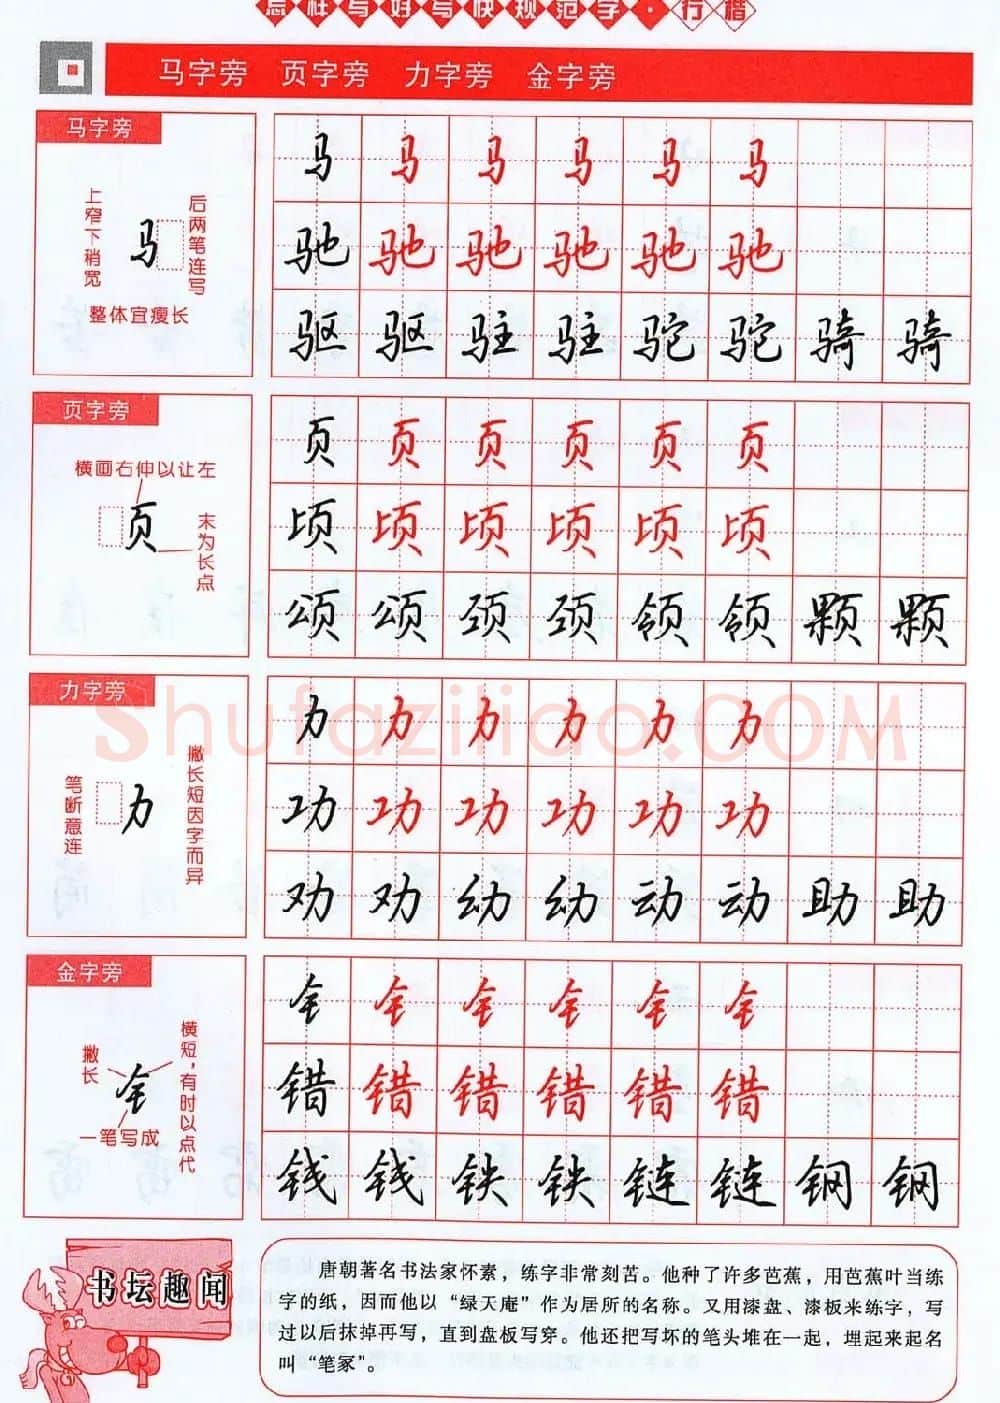 怎样写好写快规范字·行楷
马字旁 页字旁 力字旁 金字旁
马字旁
上窄下稍宽
马
后两笔连写
整体宜瘦长
马 马 马 马 马 马
驰 驰 驰 驰 驰 驰
驱 驱 驻 驻 驼 驼 骑 骑
页字旁
横画右伸以让左
页
末为长点
页 页 页 页 页 页
顷 顷 顷 顷 顷 顷
颂 颂 颈 颈 领 领 颗 颗
力字旁
笔断意连
力
撇长短因字而异
力 力 力 力 力 力
功 功 功 功 功 功
劝 劝 幼 幼 动 动 助 助
shufaziliao.COM
金字旁
撇长
钅
横短，有时以点代
一笔写成
钅 钅 钅 钅 钅 钅
错 错 错 错 错 错
钱 钱 铁 铁 链 链 钢 钢
书坛趣闻
唐朝著名书法家怀素，练字非常刻苦。他种了许多芭蕉，用芭蕉叶当练
字的纸，因而他以“绿天庵”作为居所的名称。又用漆盘、漆板来练字，写
过以后抹掉再写，直到盘板写穿。他还把写坏的笔头堆在一起，埋起来起名
叫“笔冢”。